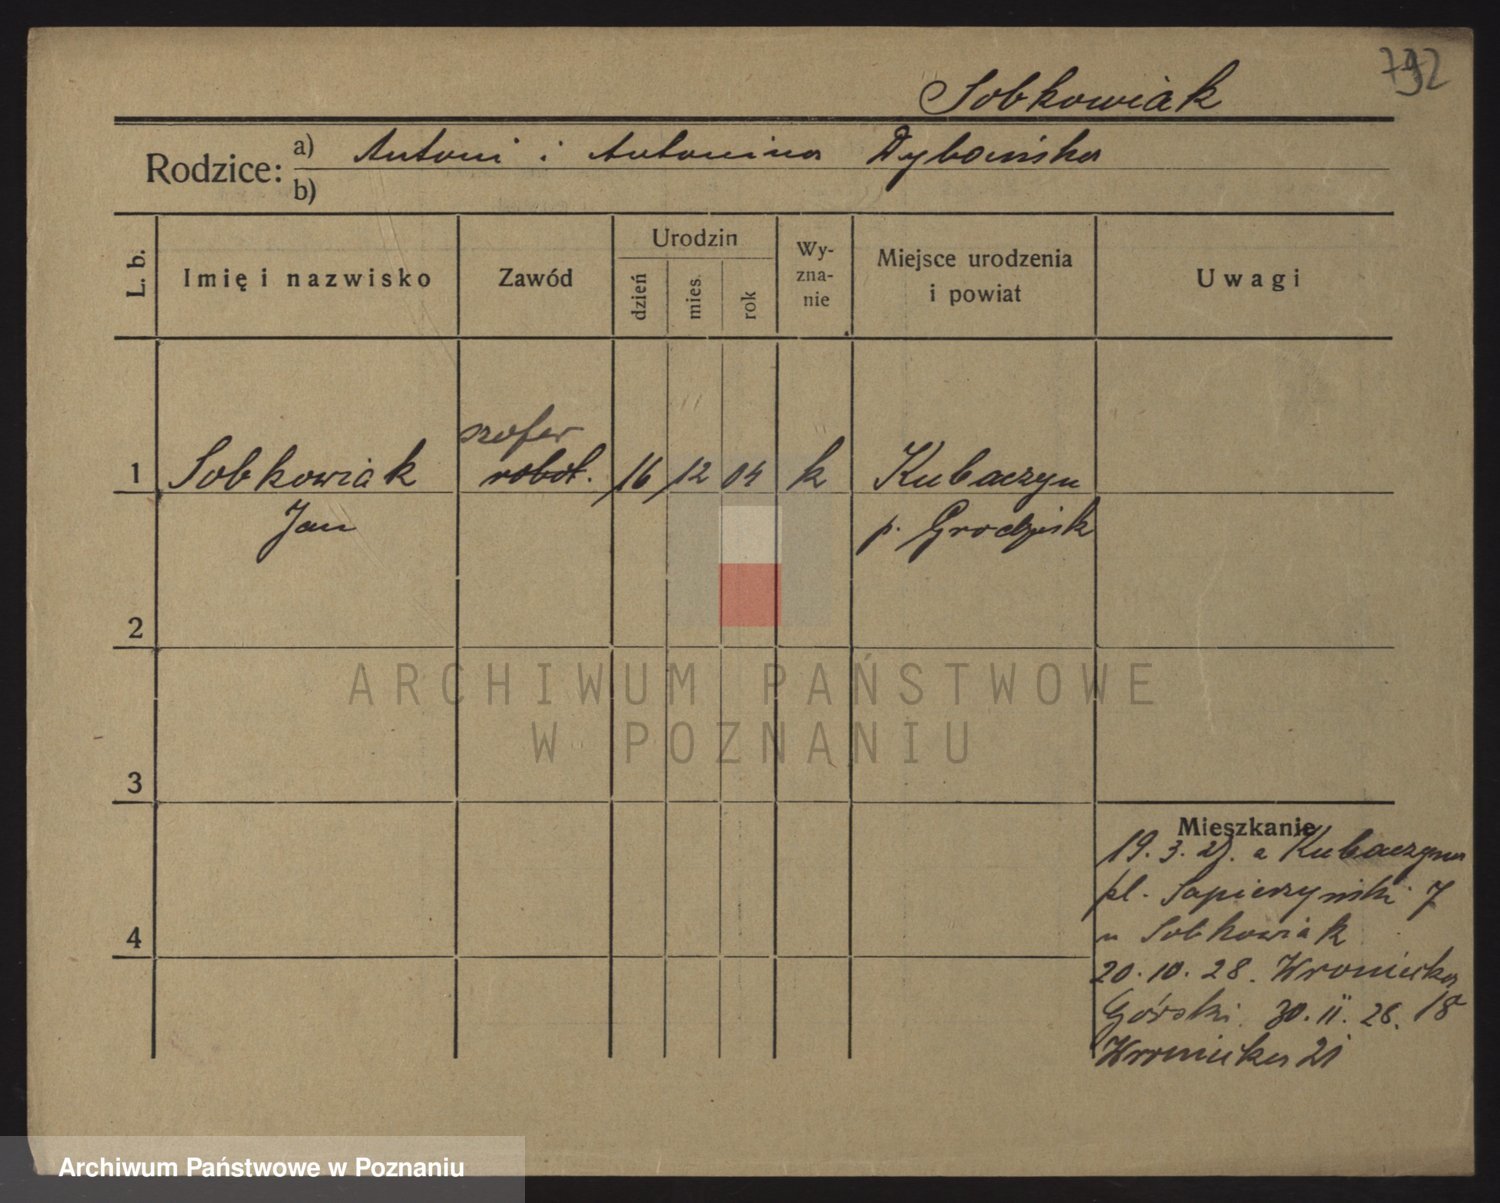 Sobkowiak
Rodzice: a) Antoni i Antonina Dybońska
b)
L. b.
Imię i nazwisko
Zawód
Urodzin
dzień
mies.
rok
Wy-
zna-
nie
Miejsce urodzenia
i powiat
Uwagi
szofer
1 Sobkowiak robot. 16 12 04 k Kubaczyn
Jan p. Grodzisk
2
3
4
Mieszkanie
19. 3. 27. a Kubaczyna
pl. Sapieżyński 7
u Sobkowiak
20. 10. 28. Wroniecka
Górski 30. 11. 28. 18
Wroniecka 21
ARCHIWUM PAŃSTWOWE
W POZNANIU
Archiwum Państwowe w Poznaniu